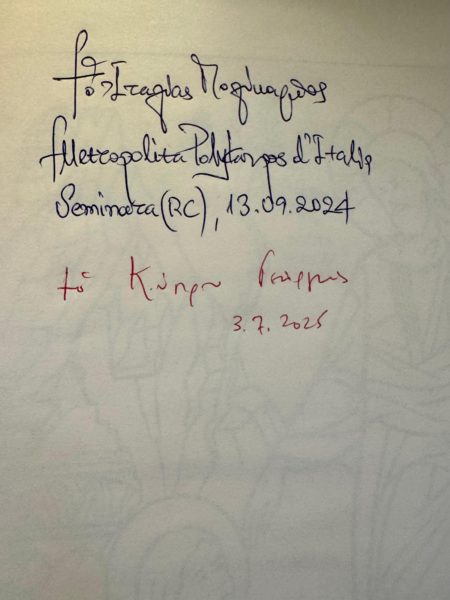 † ὁ Ἰταλίας Πολύκαρπος
† Metropolita Polykarpos d'Italia
Seminara (RC), 13.09.2024
† ὁ Κύπρου Γεώργιος
3.7.2025